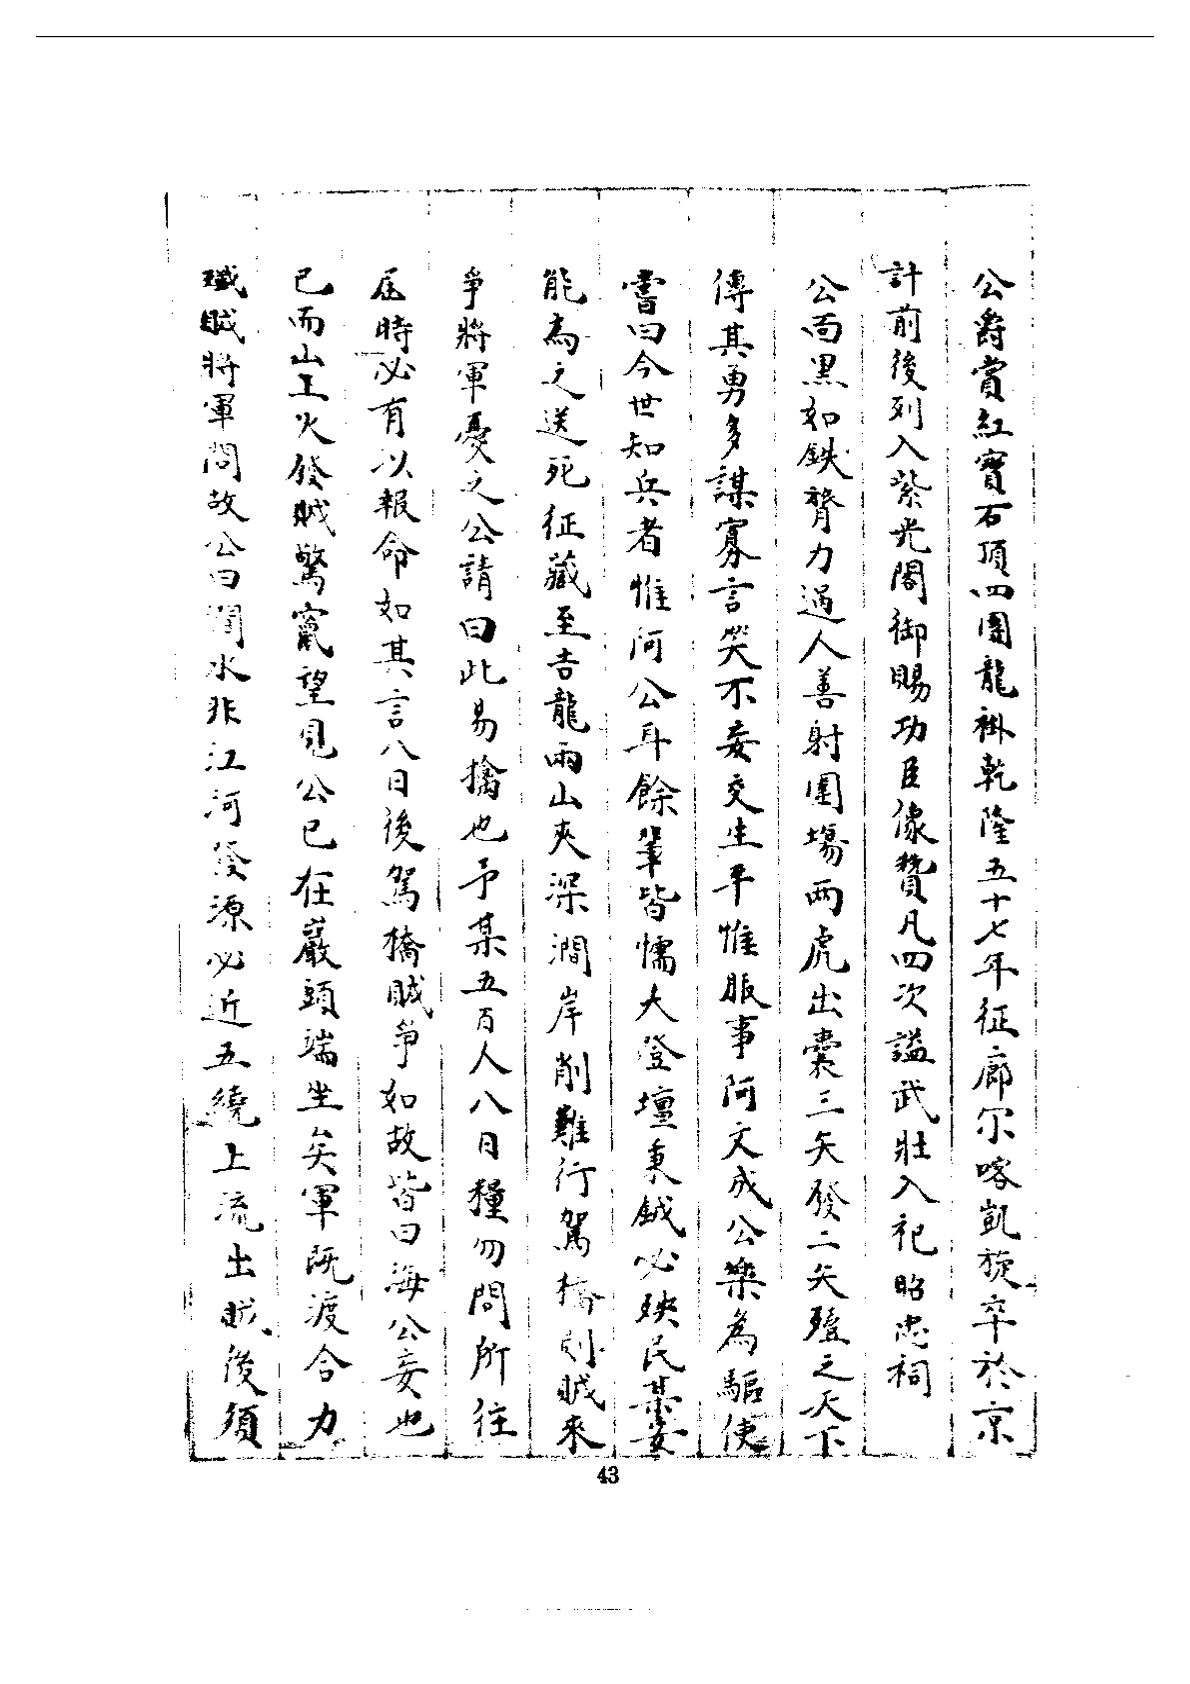 公爵賞紅寶石頂四團龍褂乾隆五十七年征廓尔喀凱旋卒於京
計前後列入紫光閣御賜功臣像贊凡四次謚武壯入祀昭忠祠
公面黑如鉄膂力過人善射圍場两虎出橐三矢發二矢殪之天下
傳其勇多謀寡言笑不妄交生平惟服事阿文成公樂為驅使
嘗曰今世知兵者惟阿公耳餘輩皆懦夫登壇秉鉞必殃民某安
能為之送死征藏至吉龍兩山夾深澗岸削難行駕橋則賊來
爭將軍憂之公請曰此易擒也予某五百人八日糧勿問所往
屆時必有以報命如其言八日後駕橋賊爭如故皆曰海公妄也
已而山上火發賊驚竄望見公已在巖頭端坐矣軍既渡合力
殲賊將軍問故公曰澗水非江河發源必近五繞上流出賊後須
43